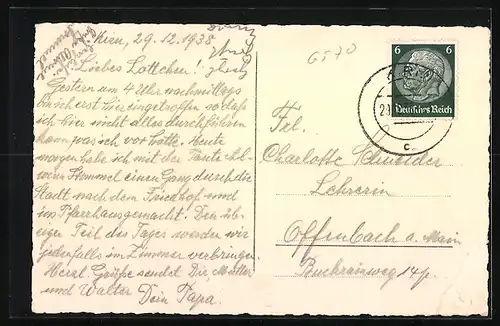 Kirn, 29.12.1938
Liebes Lottchen!
Gestern um 4 Uhr nachmittags
bin ich erst hier eingetroffen so daß
ich hier nicht alles durchführen
kann was ich vor hatte. Heute
morgen habe ich mit der Tante
Hommel einen Gang durch die
Stadt nach dem Friedhof und
ins Pfarrhaus gemacht. Den üb-
rigen Teil des Tages werden wir
jedenfalls im Zimmer verbringen.
Herzl. Grüße sendet Dir, Mutter
und Walter Dein Papa.
6 6
Deutsches Reich
c
Frl.
Charlotte Schneider
Lehrerin
Offenbach a. Main
Buchrainweg 14